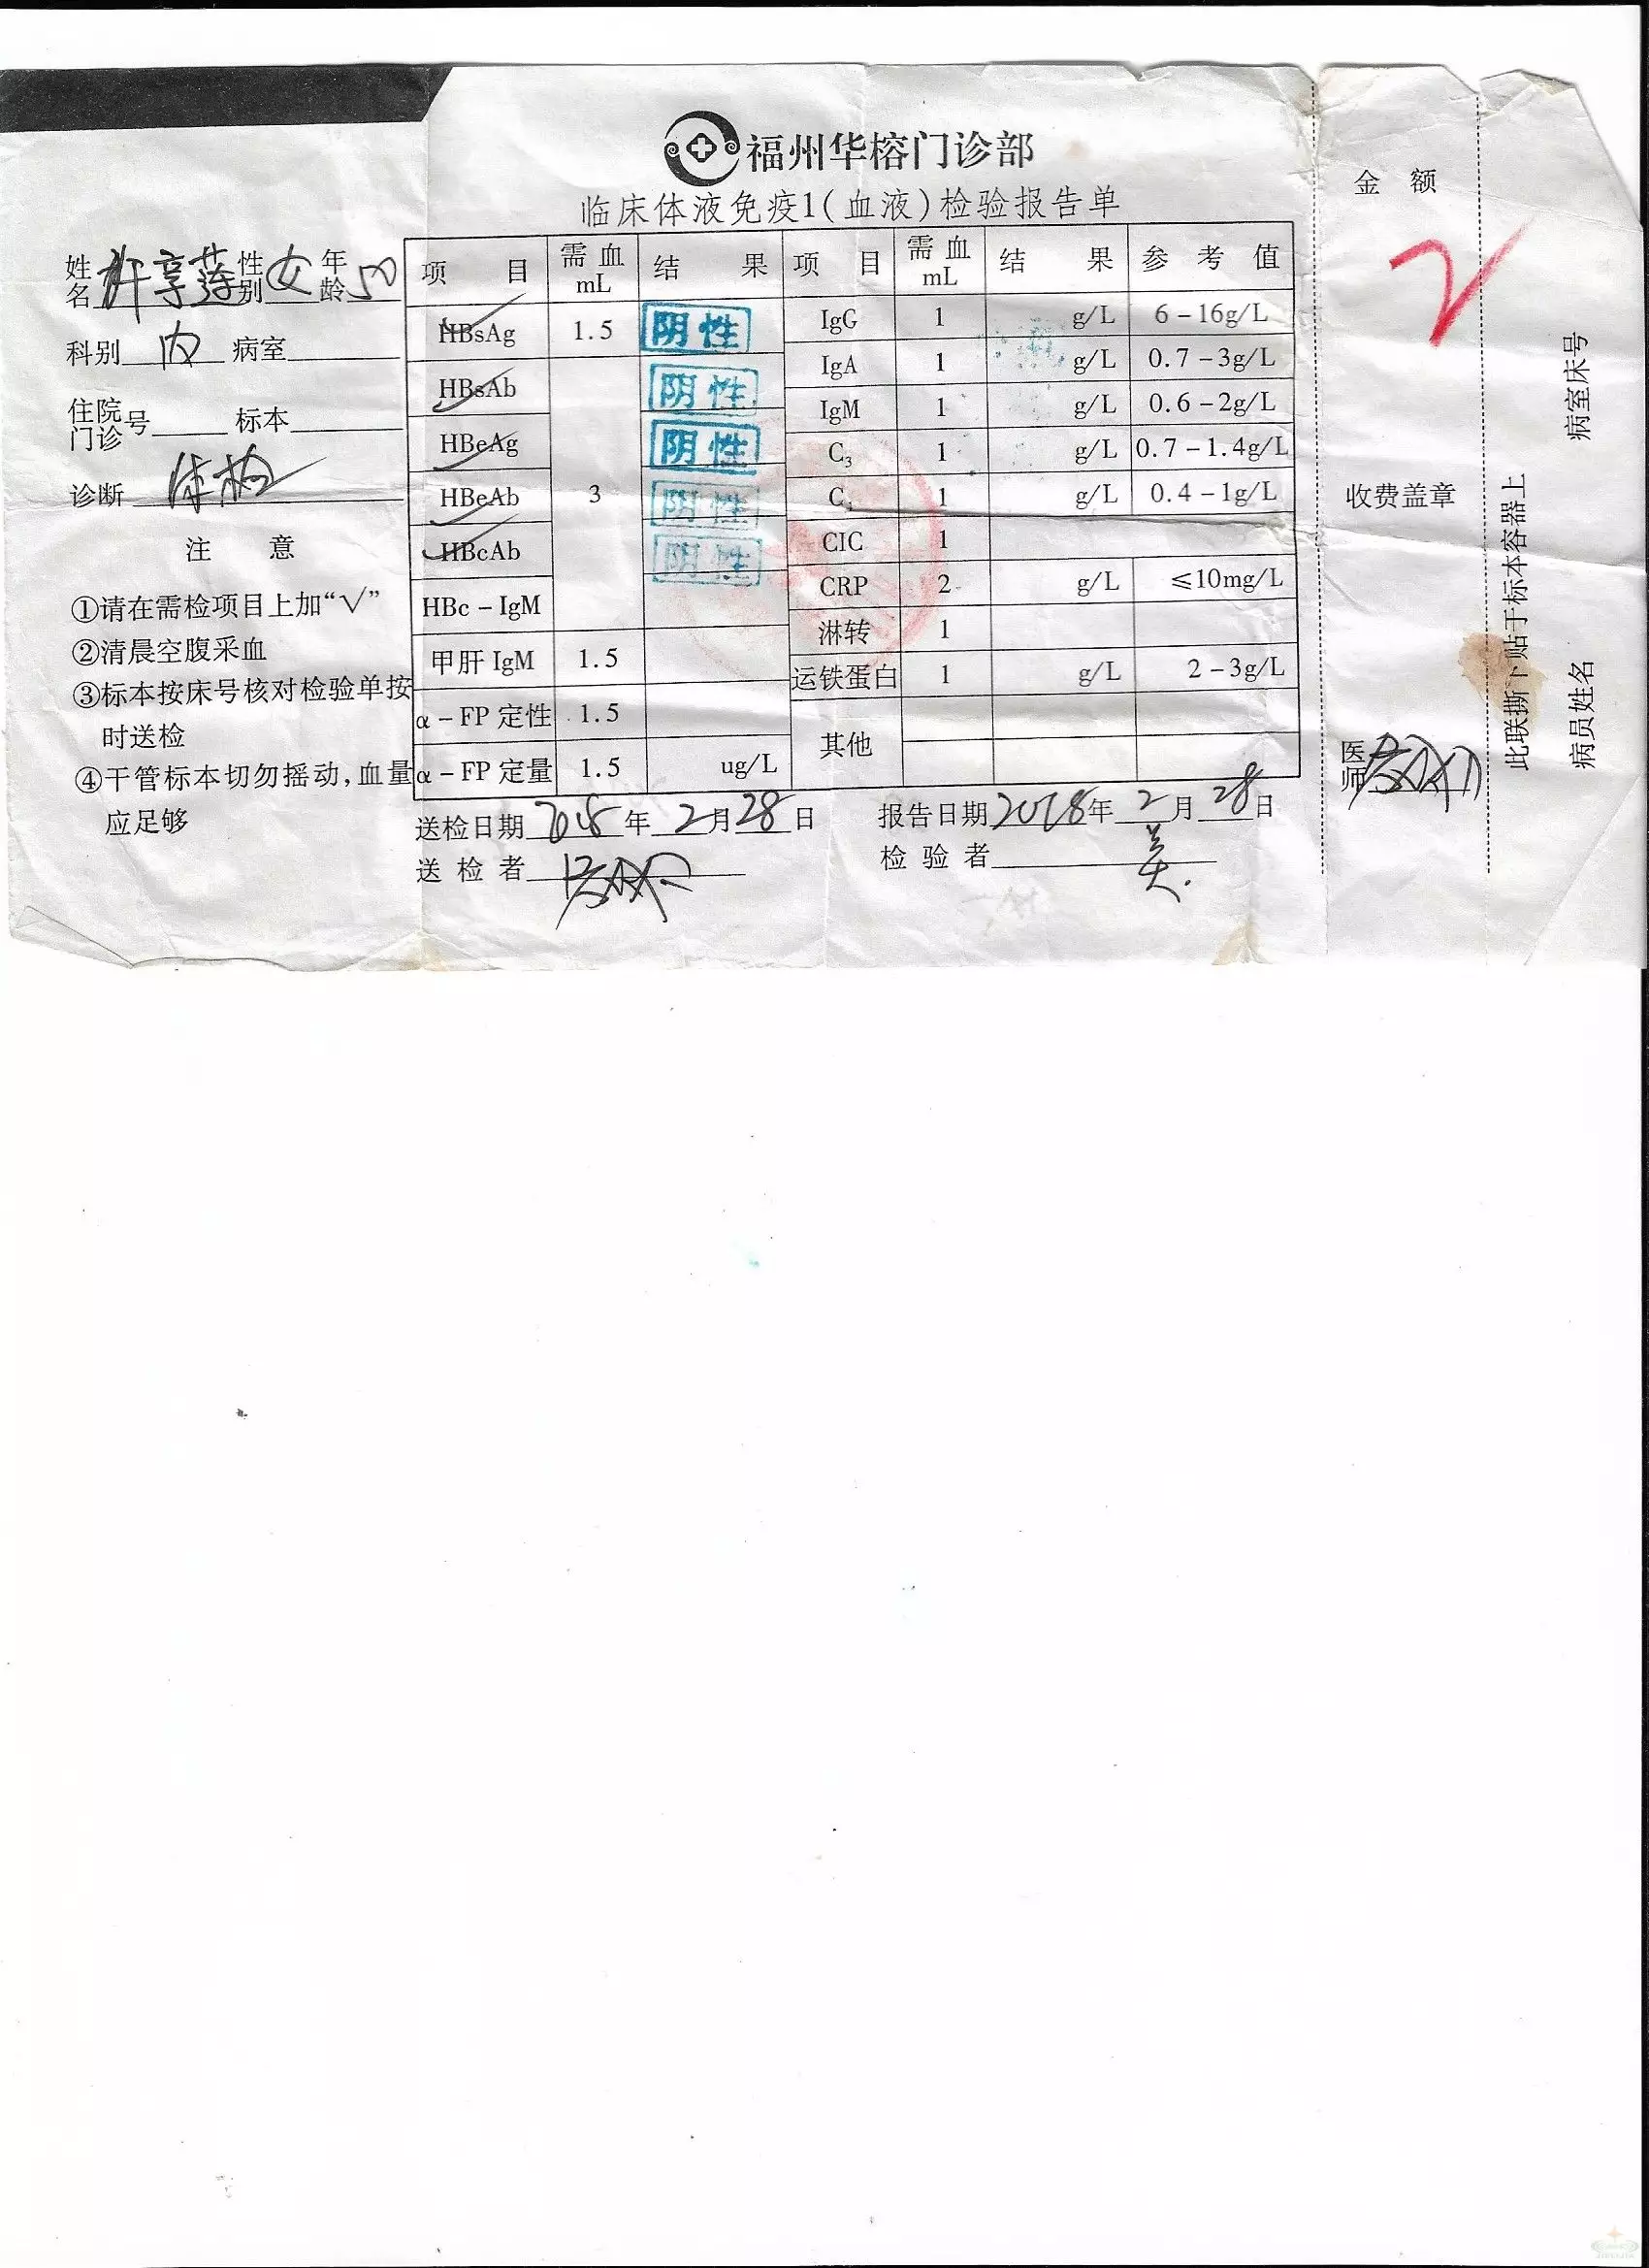 福州华榕门诊部
临床体液免疫1(血液)检验报告单
姓名 许享莲 性别 女 年龄 50
科别 内 病室
住院门诊号 标本
诊断 体检
注 意
①请在需检项目上加“√”
②清晨空腹采血
③标本按床号核对检验单按
时送检
④干管标本切勿摇动,血量
应足够
项 目 需血mL 结 果 项 目 需血mL 结 果 参 考 值
HBsAg 1.5 阴性 IgG 1 g/L 6-16g/L
HBsAb 阴性 IgA 1 g/L 0.7-3g/L
IgM 1 g/L 0.6-2g/L
HBeAg 阴性 C3 1 g/L 0.7-1.4g/L
HBeAb 3 阴性 C4 1 g/L 0.4-1g/L
HBcAb 阴性 CIC 1
HBc-IgM CRP 2 g/L ≤10mg/L
淋转 1
甲肝 IgM 1.5 运铁蛋白 1 g/L 2-3g/L
α-FP 定性 1.5 其他
α-FP 定量 1.5 ug/L
送检日期 2018 年 2 月 28 日 报告日期 2018 年 2 月 28 日
送 检 者 检 验 者
金 额
收费盖章
医师
此联撕下贴于标本容器上
病室床号
病员姓名